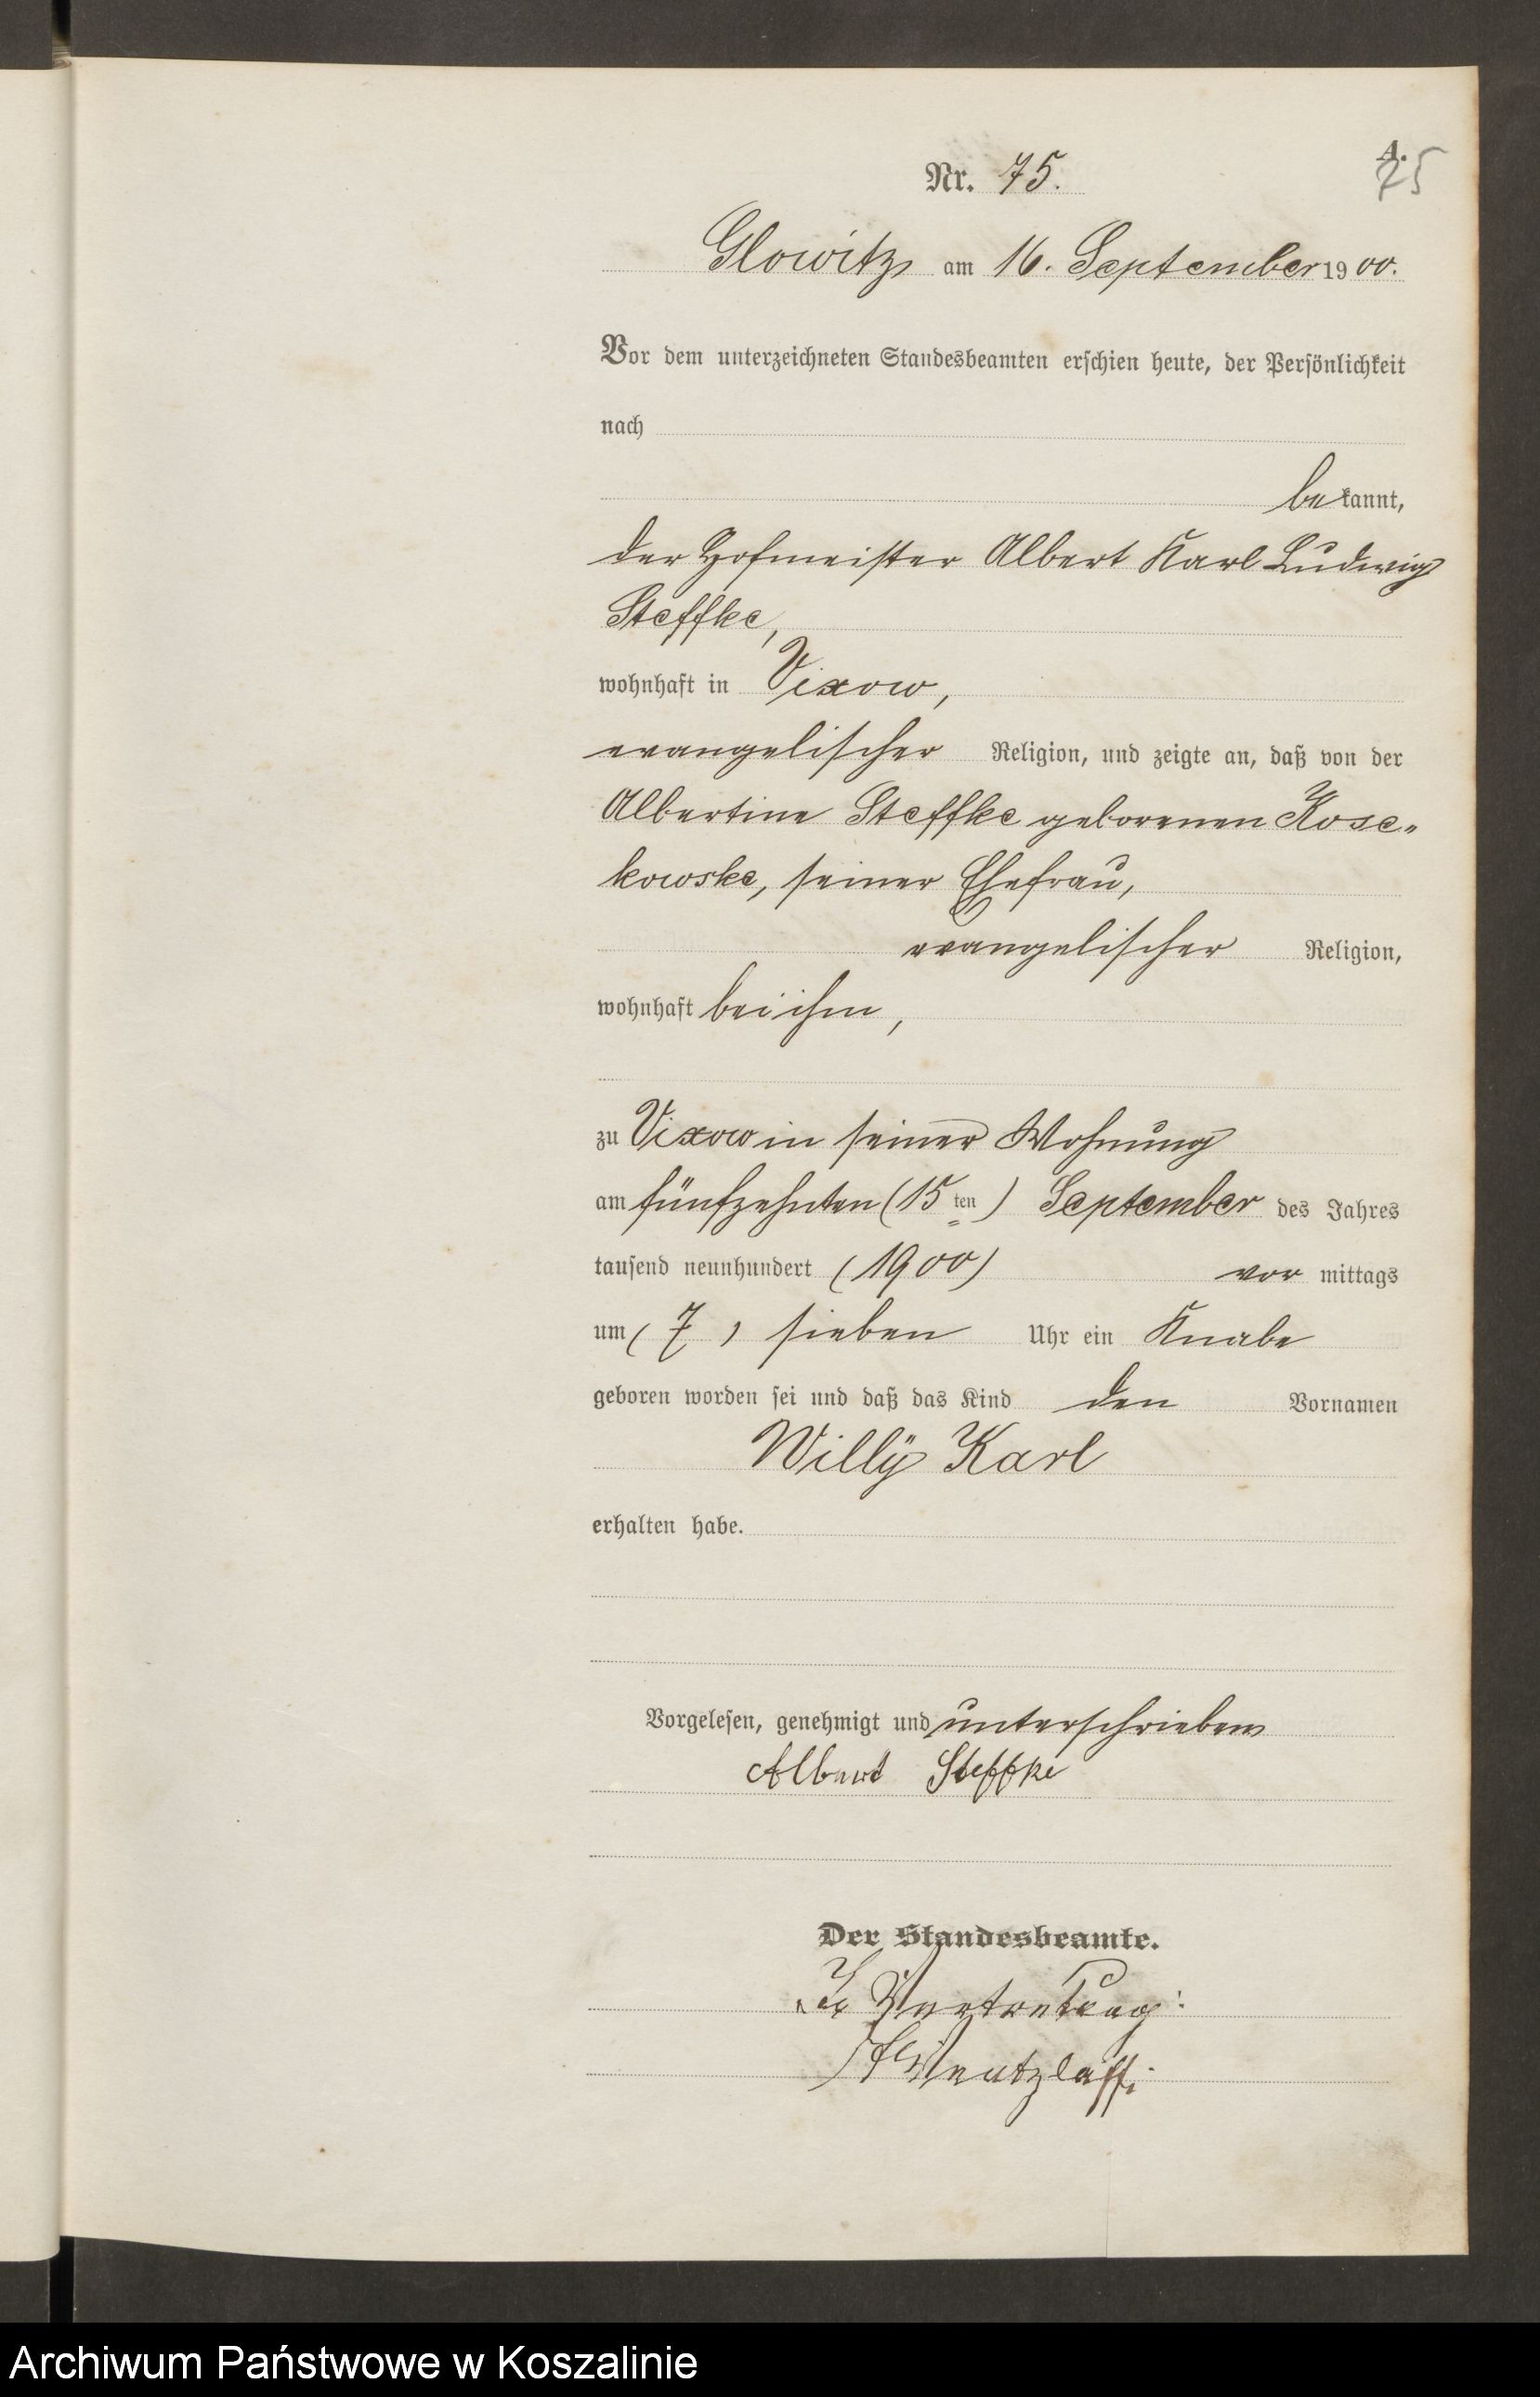 A.
75
Nr. 75.
Glowitz am 16. September 1900.
Vor dem unterzeichneten Standesbeamten erschien heute, der Persönlichkeit
nach
bekannt,
der Hofmeister Albert Karl Ludwig
Steffke,
wohnhaft in Vixow,
evangelischer Religion, und zeigte an, daß von der
Albertine Steffke geborenen Kose-
kowske, seiner Ehefrau,
evangelischer Religion,
wohnhaft bei ihm,
zu Vixow in seiner Wohnung
am fünfzehnten (15 ten) September des Jahres
tausend neunhundert (1900) vor mittags
um (7) sieben Uhr ein Knabe
geboren worden sei und daß das Kind den Vornamen
Willÿ Karl
erhalten habe.
Vorgelesen, genehmigt und unterschrieben
Albert Steffke
Der Standesbeamte.
In Vertretung:
Wentzlaff.
Archiwum Państwowe w Koszalinie